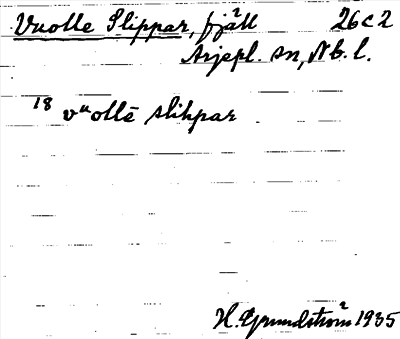 Vuolle Slippar, fjäll 26c2
Arjepl. sn, Nb. l.
18 vuollē slihpar
H. Grundström 1935